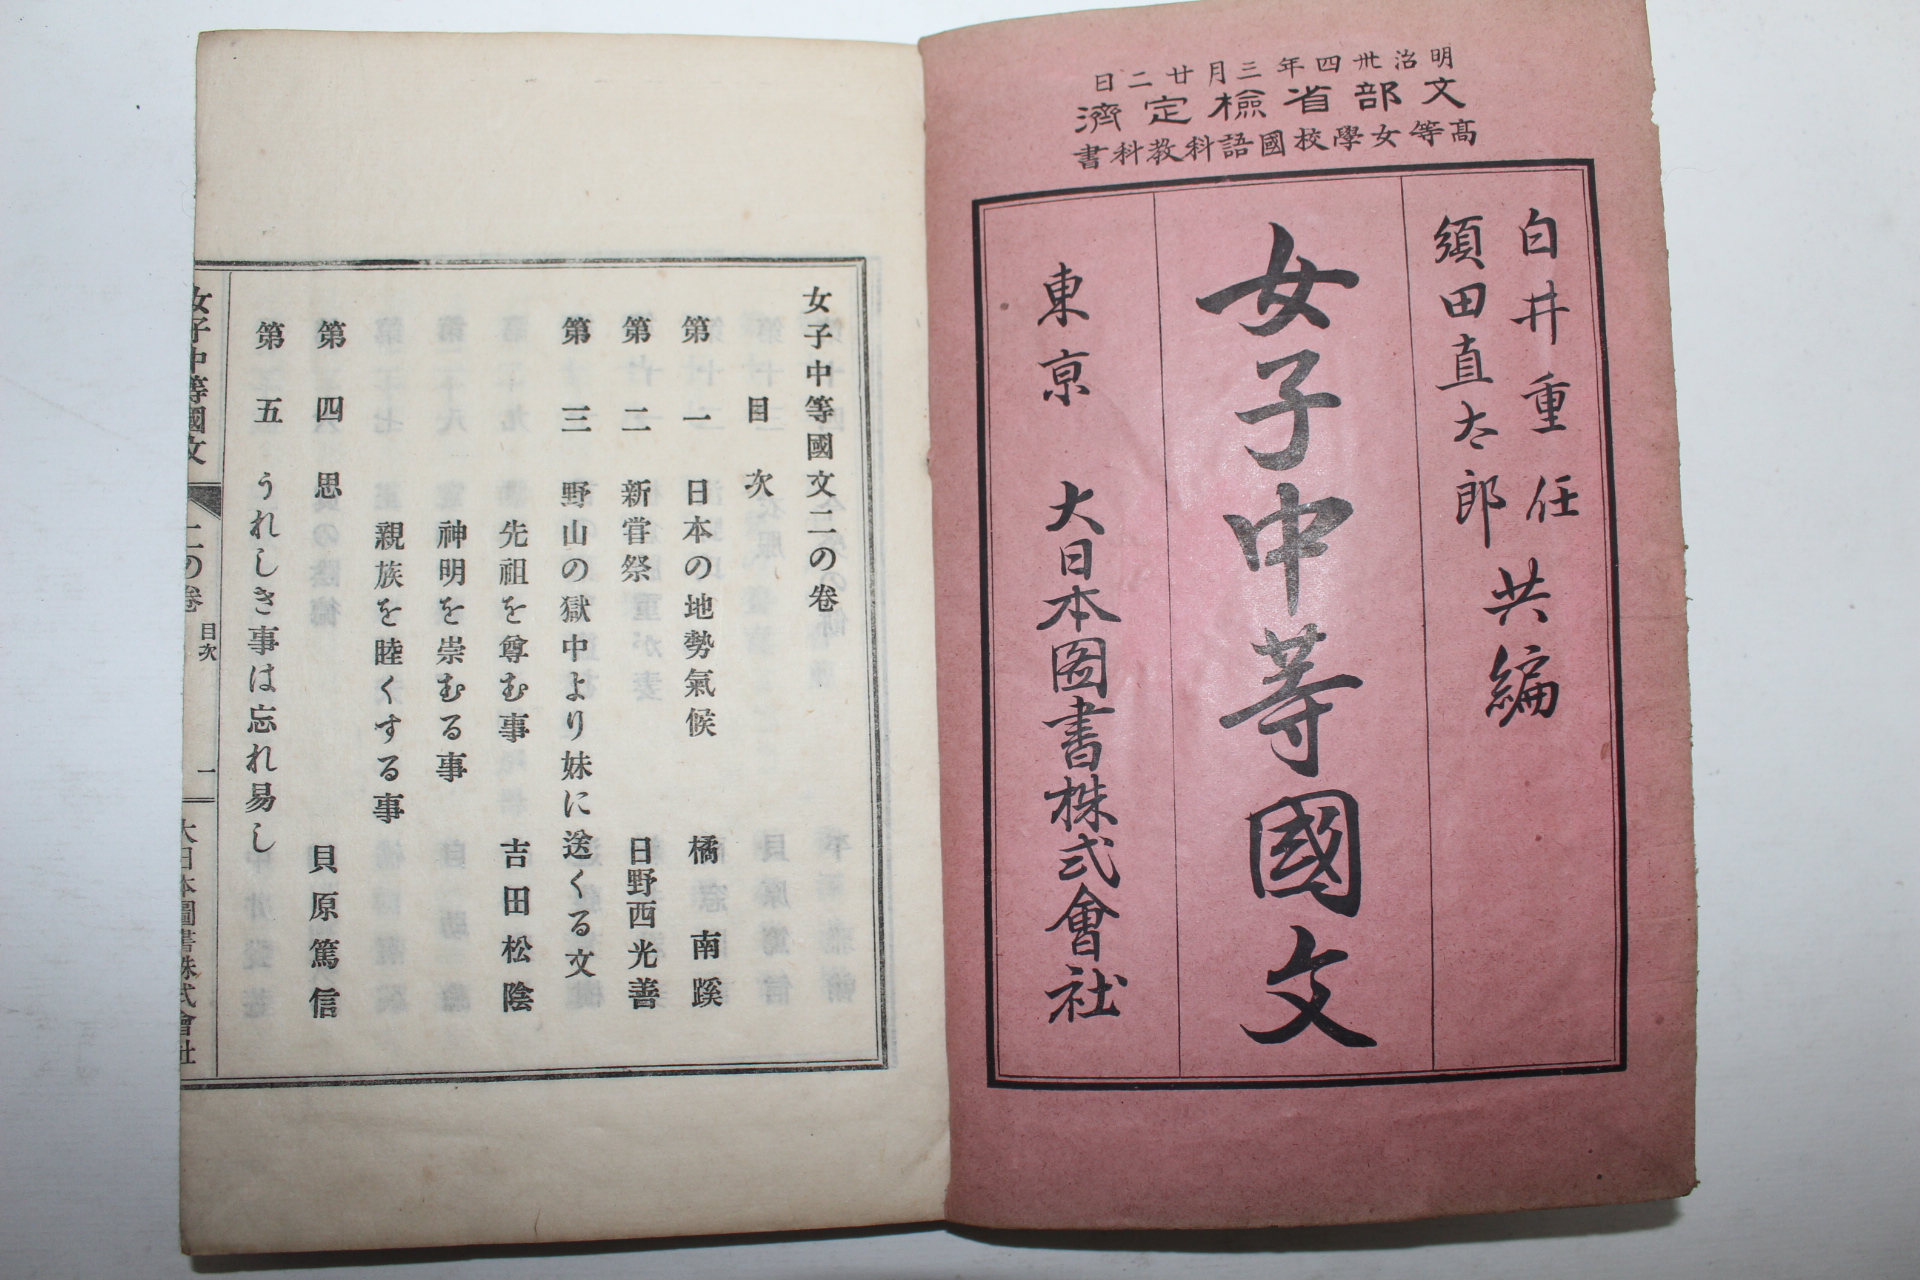 明治卅四年三月廿二日
文部省檢定濟
高等女學校國語科教科書
白井重任
須田直太郎
共編
女子中等國文
東京 大日本图書株式會社
女子中等國文二の卷
目次
第一 日本の地勢氣候 橘南蹊
第二 新嘗祭 日野西光善
第三 野山の獄中より妹に送くる文
先祖を尊む事 吉田松陰
神明を崇むる事
親族を睦くする事
第四 思 貝原篤信
第五 うれしき事は忘れ易し
女子中等國文 二の卷 目次 一 大日本圖書株式會社